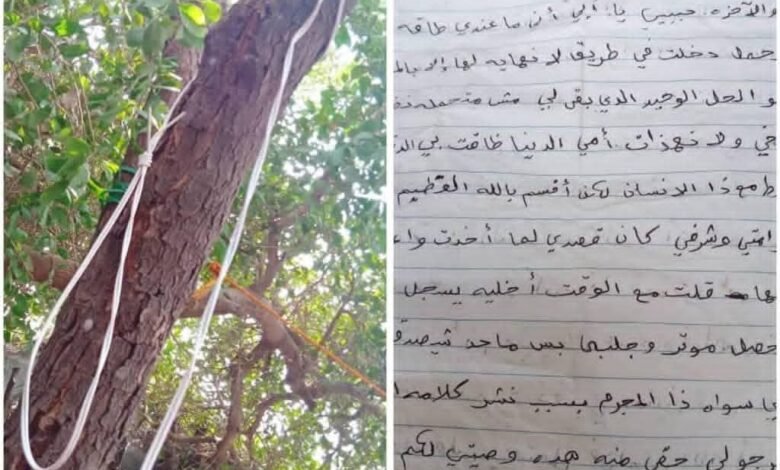 و الآخره. حبيبي يا أبي أنا ما عندي طاقه
دخلت في طريق لا نهايه لها إلا
و الحل الوحيد الذي بقى لي مش متحمله
ولا نهذات أمي الدنيا ظاقت بي
طمع ذا الانسان لكن أقسم بالله العظيم
وشرفي كان قصدي لما أخذت
قلت مع الوقت أخليه يسجل
حصل موتر وجلبها بس ماحد شيصدق
سواه ذا المجرم بسبب نشر كلامه
حقي منه هذه وصيتي لكم